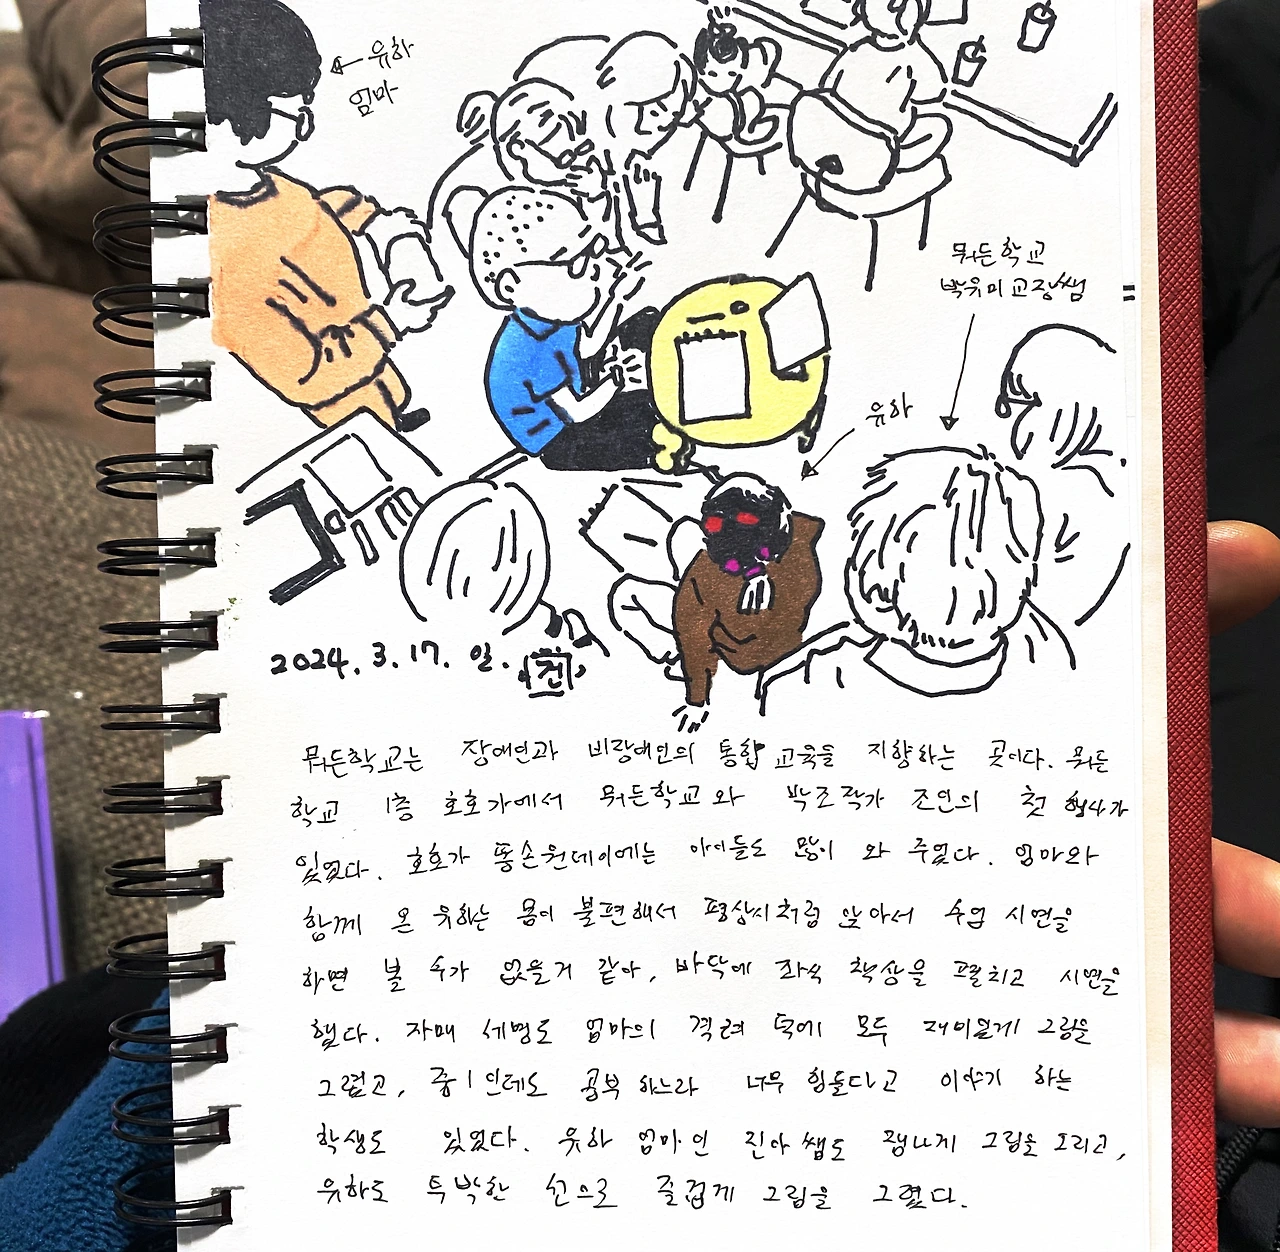 유하
엄마
뭐든학교
박유미교장쌤
유하
2024. 3. 17. 일. 건
뭐든학교는 장애인과 비장애인의 통합 교육을 지향하는 곳이다. 뭐든
학교 1층 호호가에서 뭐든학교와 박조락가 조인의 첫 행사가
있었다. 호호가 똥손원데이에는 아이들도 많이 와 주었다. 엄마와
함께 온 유하는 몸이 불편해서 평상시처럼 앉아서 수업 시연을
하면 볼 수가 없을거 같아, 바닥에 좌식 책상을 펼치고 시연을
했다. 자매 세명도 엄마의 격려 덕에 모두 재미있게 그림을
그렸고, 중1인데도 공부하느라 너무 힘들다고 이야기 하는
학생도 있었다. 유하 엄마인 진아쌤도 잼나게 그림을 그리고,
유하도 투박한 선으로 즐겁게 그림을 그렸다.